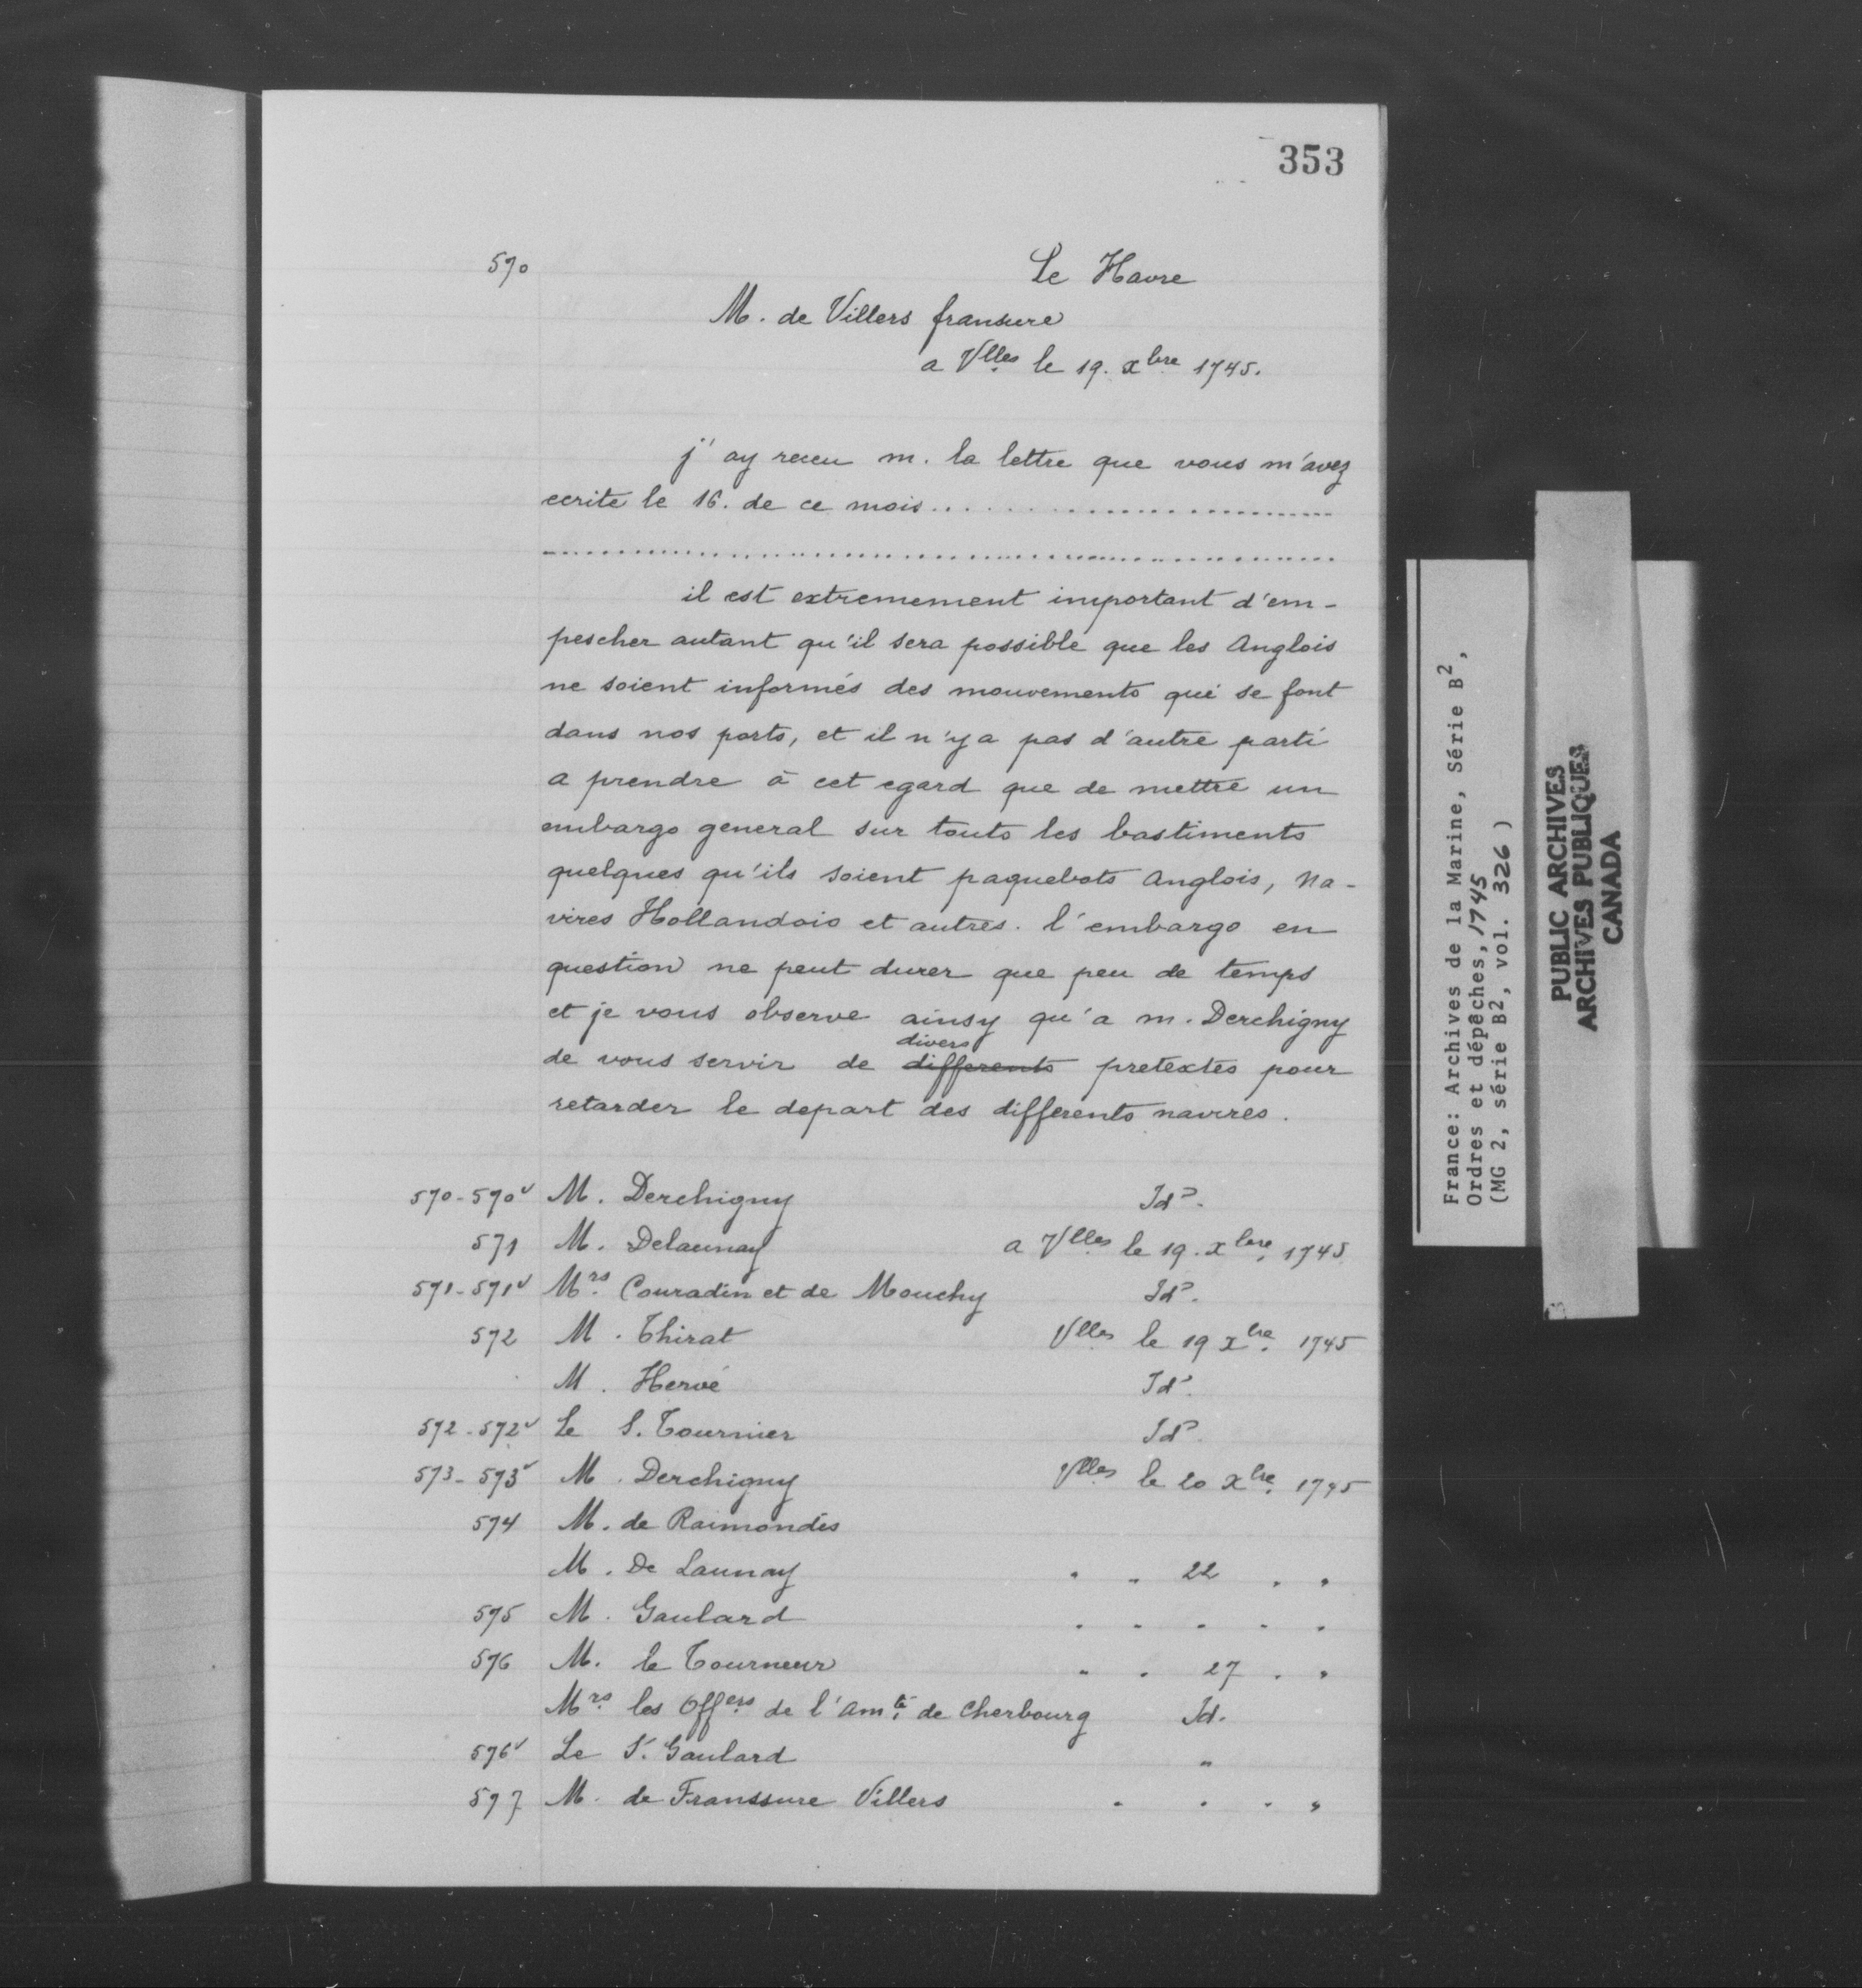 353
570 Le Havre
M. de Villers fransure
a Vlles le 19. xbre 1745.
j'ay receu m. la lettre que vous m'avez
ecrite le 16. de ce mois..............................
..............................
il est extremement important d'em-
pescher autant qu'il sera possible que les Anglois
ne soient informés des mouvements qui se font
dans nos ports, et il n'y a pas d'autre parti
a prendre à cet egard que de mettre un
embargo general sur touts les bastiments
quelques qu'ils soient paquebots Anglois, Na-
vires Hollandois et autres. l'embargo en
question ne peut durer que peu de temps
et je vous observe ainsy qu'a m. Derchigny
divers
de vous servir de differents pretextes pour
retarder le depart des differents navires.
570-570v M. Derchigny Id?.
571 M. Delaunay a Vlles le 19. xbre 1745
571-571v Mrs Couradin et de Mouchy Id?.
572 M. Thirat Vlles le 19 xbre 1745
M. Hervé Id?.
572-572v Le S. Tournier Id?.
573-573v M. Derchigny Vlles le 20 xbre 1745
574 M. de Raimondis
M. De Launay " " 22 " "
575 M. Gaulard " " " " "
576 M. le Tourneur " " 27 " "
Mrs les Offers de l'Amté de Cherbourg Id.
576v Le Sr Gaulard "
577 M. de Franssure Villers " " " "
France: Archives de la Marine, Série B2,
Ordres et dépêches, 1745
(MG 2, série B2, vol. 326)
PUBLIC ARCHIVES
ARCHIVES PUBLIQUES
CANADA